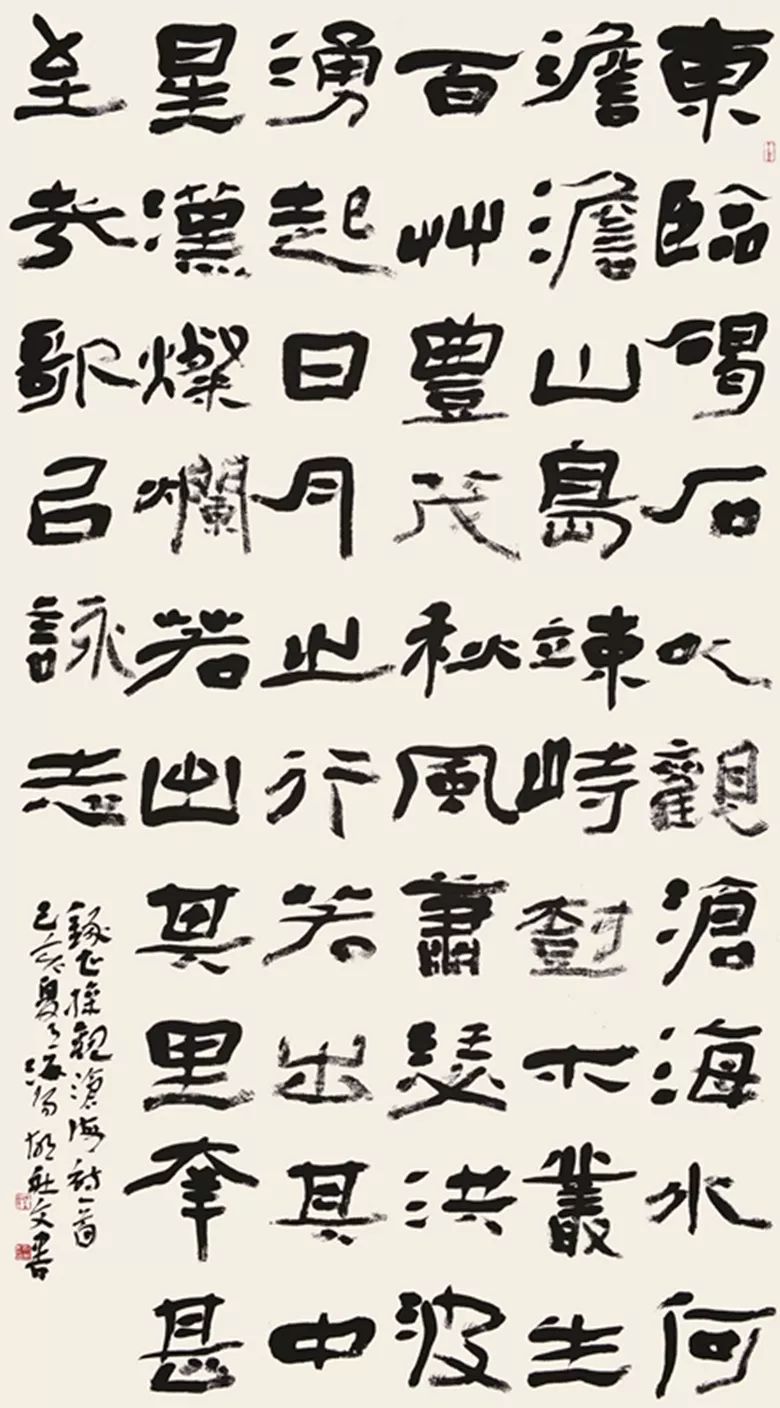 東臨碣石以觀滄海水何
澹澹山島竦峙樹木叢生
百艸豐茂秋風蕭瑟洪波
湧起日月之行若出其中
星漢燦爛若出其里幸甚
至哉歌以詠志
錄曹操觀滄海詩一首
己亥夏月海陽文書